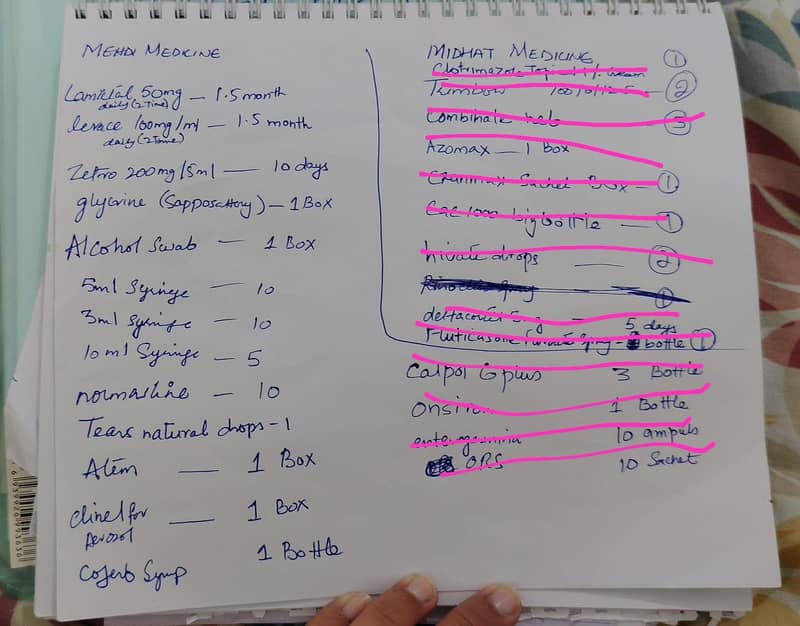 MEHDI MEDICINE
Lamictal 50mg — 1.5 month
daily (2 Time)
levace 100mg/ml — 1.5 month
daily (2 Time)
Zetro 200mg/5ml — 10 days
glycrine (Sapposchtory) — 1 Box
Alcohol Swab — 1 Box
5ml Syringe — 10
3ml Syringe — 10
10 ml Syringe — 5
normasline — 10
Tears natural drops - 1
Atem — 1 Box
clinel for — 1 Box
Aerosol
Coferb Syrup 1 Bottle
MIDHAT MEDICINE
Clotrimazole 1% cream ①
Trimbow 100/6/12.5 ②
Combinate neb ③
AZOMAX — 1 Box
Sachet Box — ①
Cac 1000 big bottle — ①
drops — ②
①
deltacortil 5mg — 5 days
Fluticasone — bottle ①
Calpol 6 plus 3 Bottle
1 Bottle
enterogermina 10 ampuls
ORS 10 Sachet